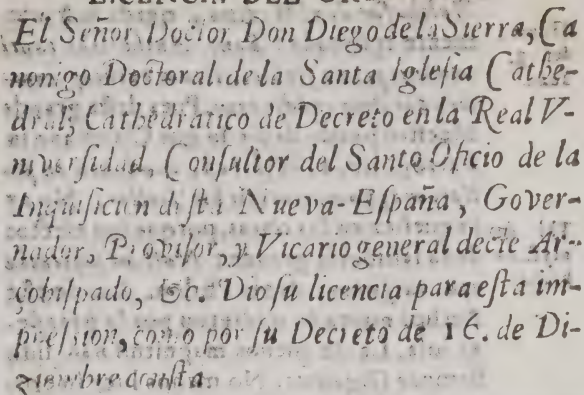 LICENCIA DEL OR
El Señor Doctor Don Diego de la Sierra, Ca
nonigo Doctoral de la Santa Iglesia Cathe-
dral, Cathedratico de Decreto en la Real V-
niversidad, Consultor del Santo Oficio de la
Inquisicion desta Nueva-España, Gover-
nador, Provisor, y Vicario general deste Ar-
çobispado, &c. Dio su licencia para esta im-
pression, como por su Decreto de 16. de Di-
ziembre consta